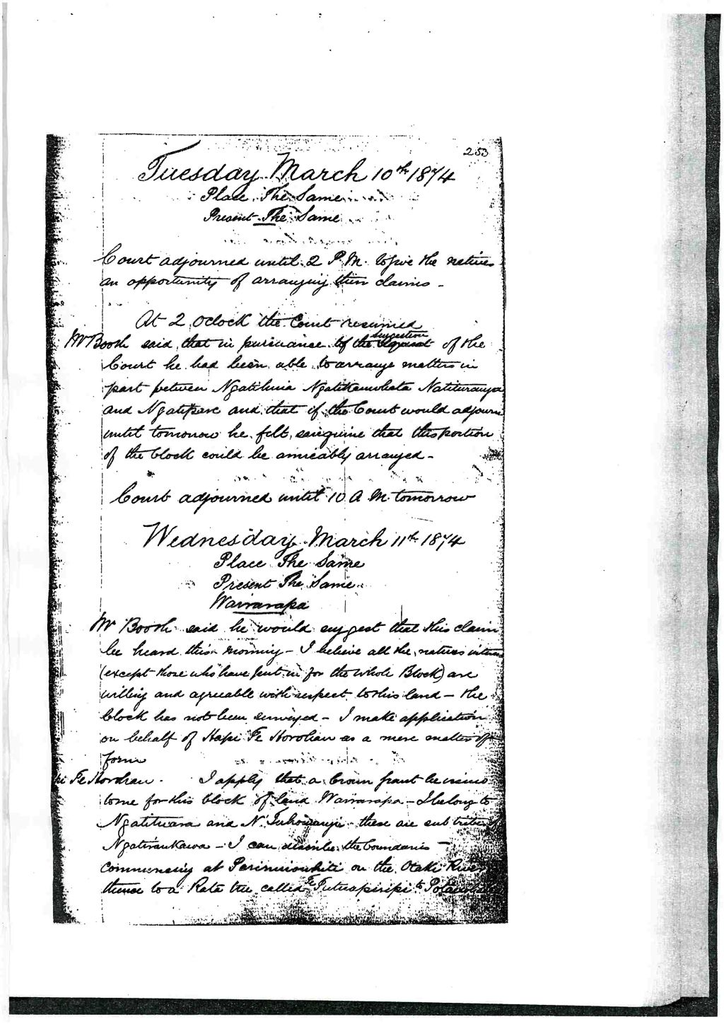 253
Tuesday March 10th 1874
Place The Same
Present The Same
Court adjourned until 2 P.M. to give the natives
an opportunity of arranging their claims -
At 2 O'clock the Court resumed
Mr Booth said that in pursuance of the suggestion of the
Court he had been able to arrange matters in
part between Ngatihuia Ngatikauwhata
and and that if the Court would adjourn
until tomorrow he felt sanguine that this portion
of the block could be amicably arranged -
Court adjourned until 10 A M tomorrow
Wednesday March 11th 1874
Place The Same
Present The Same
Wairarapa
Mr Booth said he would suggest that this claim
be heard this morning - I believe all the natives
(except those who have sent in for the whole Block) are
willing and agreeable with respect to this land - the
block has not been surveyed - I make application
on behalf of Hapi Te Horohau as a mere matter of
form
Te Horohau. I apply that a Crown grant be
to me for this block of land Wairarapa - I belong to
and N. - these are sub tribes
Ngatiraukawa - I can describe the boundaries -
commencing at on the Otaki River
thence to a Rata tree called to